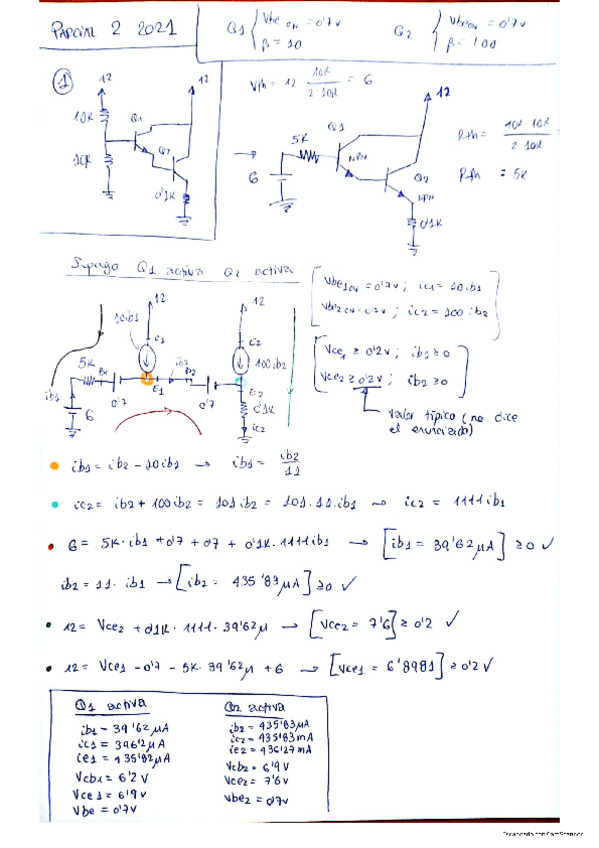 PARCIAL 2 2021
Q1 { Vbe ON = 0'7v
β = 10
Q2 { Vbe ON = 0'7v
β = 100
1
12
12
10k
Q1
10k
Q2
0'1k
Vth = 12 10k / 2·10k = 6
12
5k
Q1
NPN
6
Q2
NPN
0'1k
Rth = 10k·10k / 2·10k =
Rth = 5k
Supongo Q1 activa Q2 activa
Vbe1ON = 0'7v ; ic1 = 10 ib1
Vbe2ON = 0'7v ; ic2 = 100 ib2
Vce1 ≥ 0'2v ; ib1 ≥ 0
Vce2 ≥ 0'2v ; ib2 ≥ 0
valor típico (no dice
el enunciado)
10ib1
12
12
C1
C2
100ib2
5k
B1
ib2
B2
E1
E2
ib1
0'7
0'7
0'1k
6
ic2
ib1 = ib2 - 10ib1 → ib1 = ib2 / 11
ic2 = ib2 + 100ib2 = 101ib2 = 101·11·ib1 → ic2 = 1111ib1
6 = 5k·ib1 + 0'7 + 0'7 + 0'1k·1111ib1 → [ib1 = 39'62μA] ≥ 0 ✓
ib2 = 11·ib1 → [ib2 = 435'83μA] ≥ 0 ✓
12 = Vce2 + 0'1k·1111·39'62μ → [Vce2 = 7'6] ≥ 0'2 ✓
12 = Vce1 - 0'7 - 5k·39'62μ + 6 → [Vce1 = 6'8981] ≥ 0'2v ✓
Q1 activa
ib1 = 39'62μA
ic1 = 396'2μA
ie1 = 435'82μA
Vcb1 = 6'2v
Vce1 = 6'9v
Vbe = 0'7v
Q2 activa
ib2 = 435'83μA
ic2 = 435'83mA
ie2 = 436'27mA
Vcb2 = 6'9v
Vce2 = 7'6v
Vbe2 = 0'7v